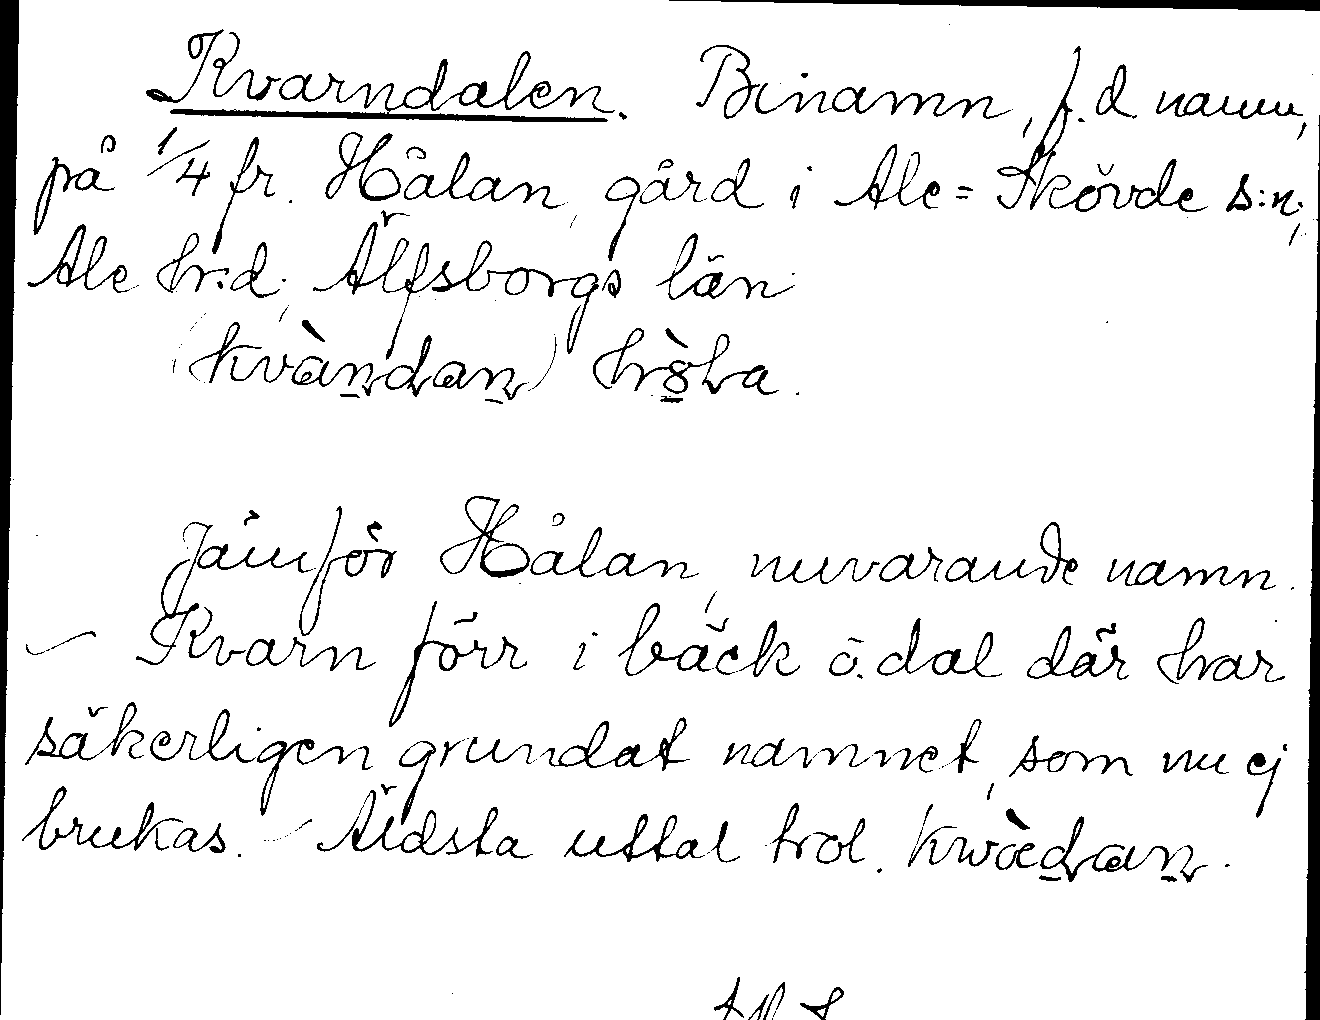 Kvarndalen. Binamn, f.d namn,
på 1/4 fr. Hålan, gård i Ale=Skövde s:n;
Ale hr:d; Älfsborgs län
(kvàndan)
Jämför Hålan, nuvarande namn.
– Kvarn förr i bäck o. dal där har
säkerligen grundat namnet, som nu ej
brukas. – Äldsta uttal trol.